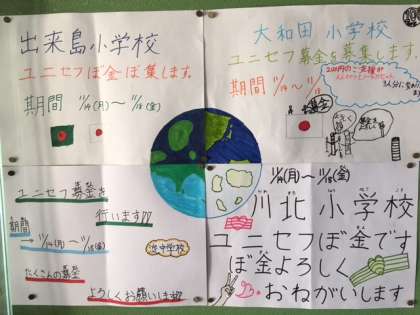 出来島小学校
ユニセフぼ金ぼ集します。
期間 11/14(月)〜11/18(金)
大和田 小学校
ユニセフ募金を募集します。
期間 11/14〜11/18
募金
ユニセフ募金を
行います!!
期間
→ 11/14(月)〜11/18(金)
浜中学校
たくさんの募金
よろしくお願いします
11/14(月)〜11/18(金)
川北 小学校
ユニセフぼ金です
ぼ金よろしく
おねがいします